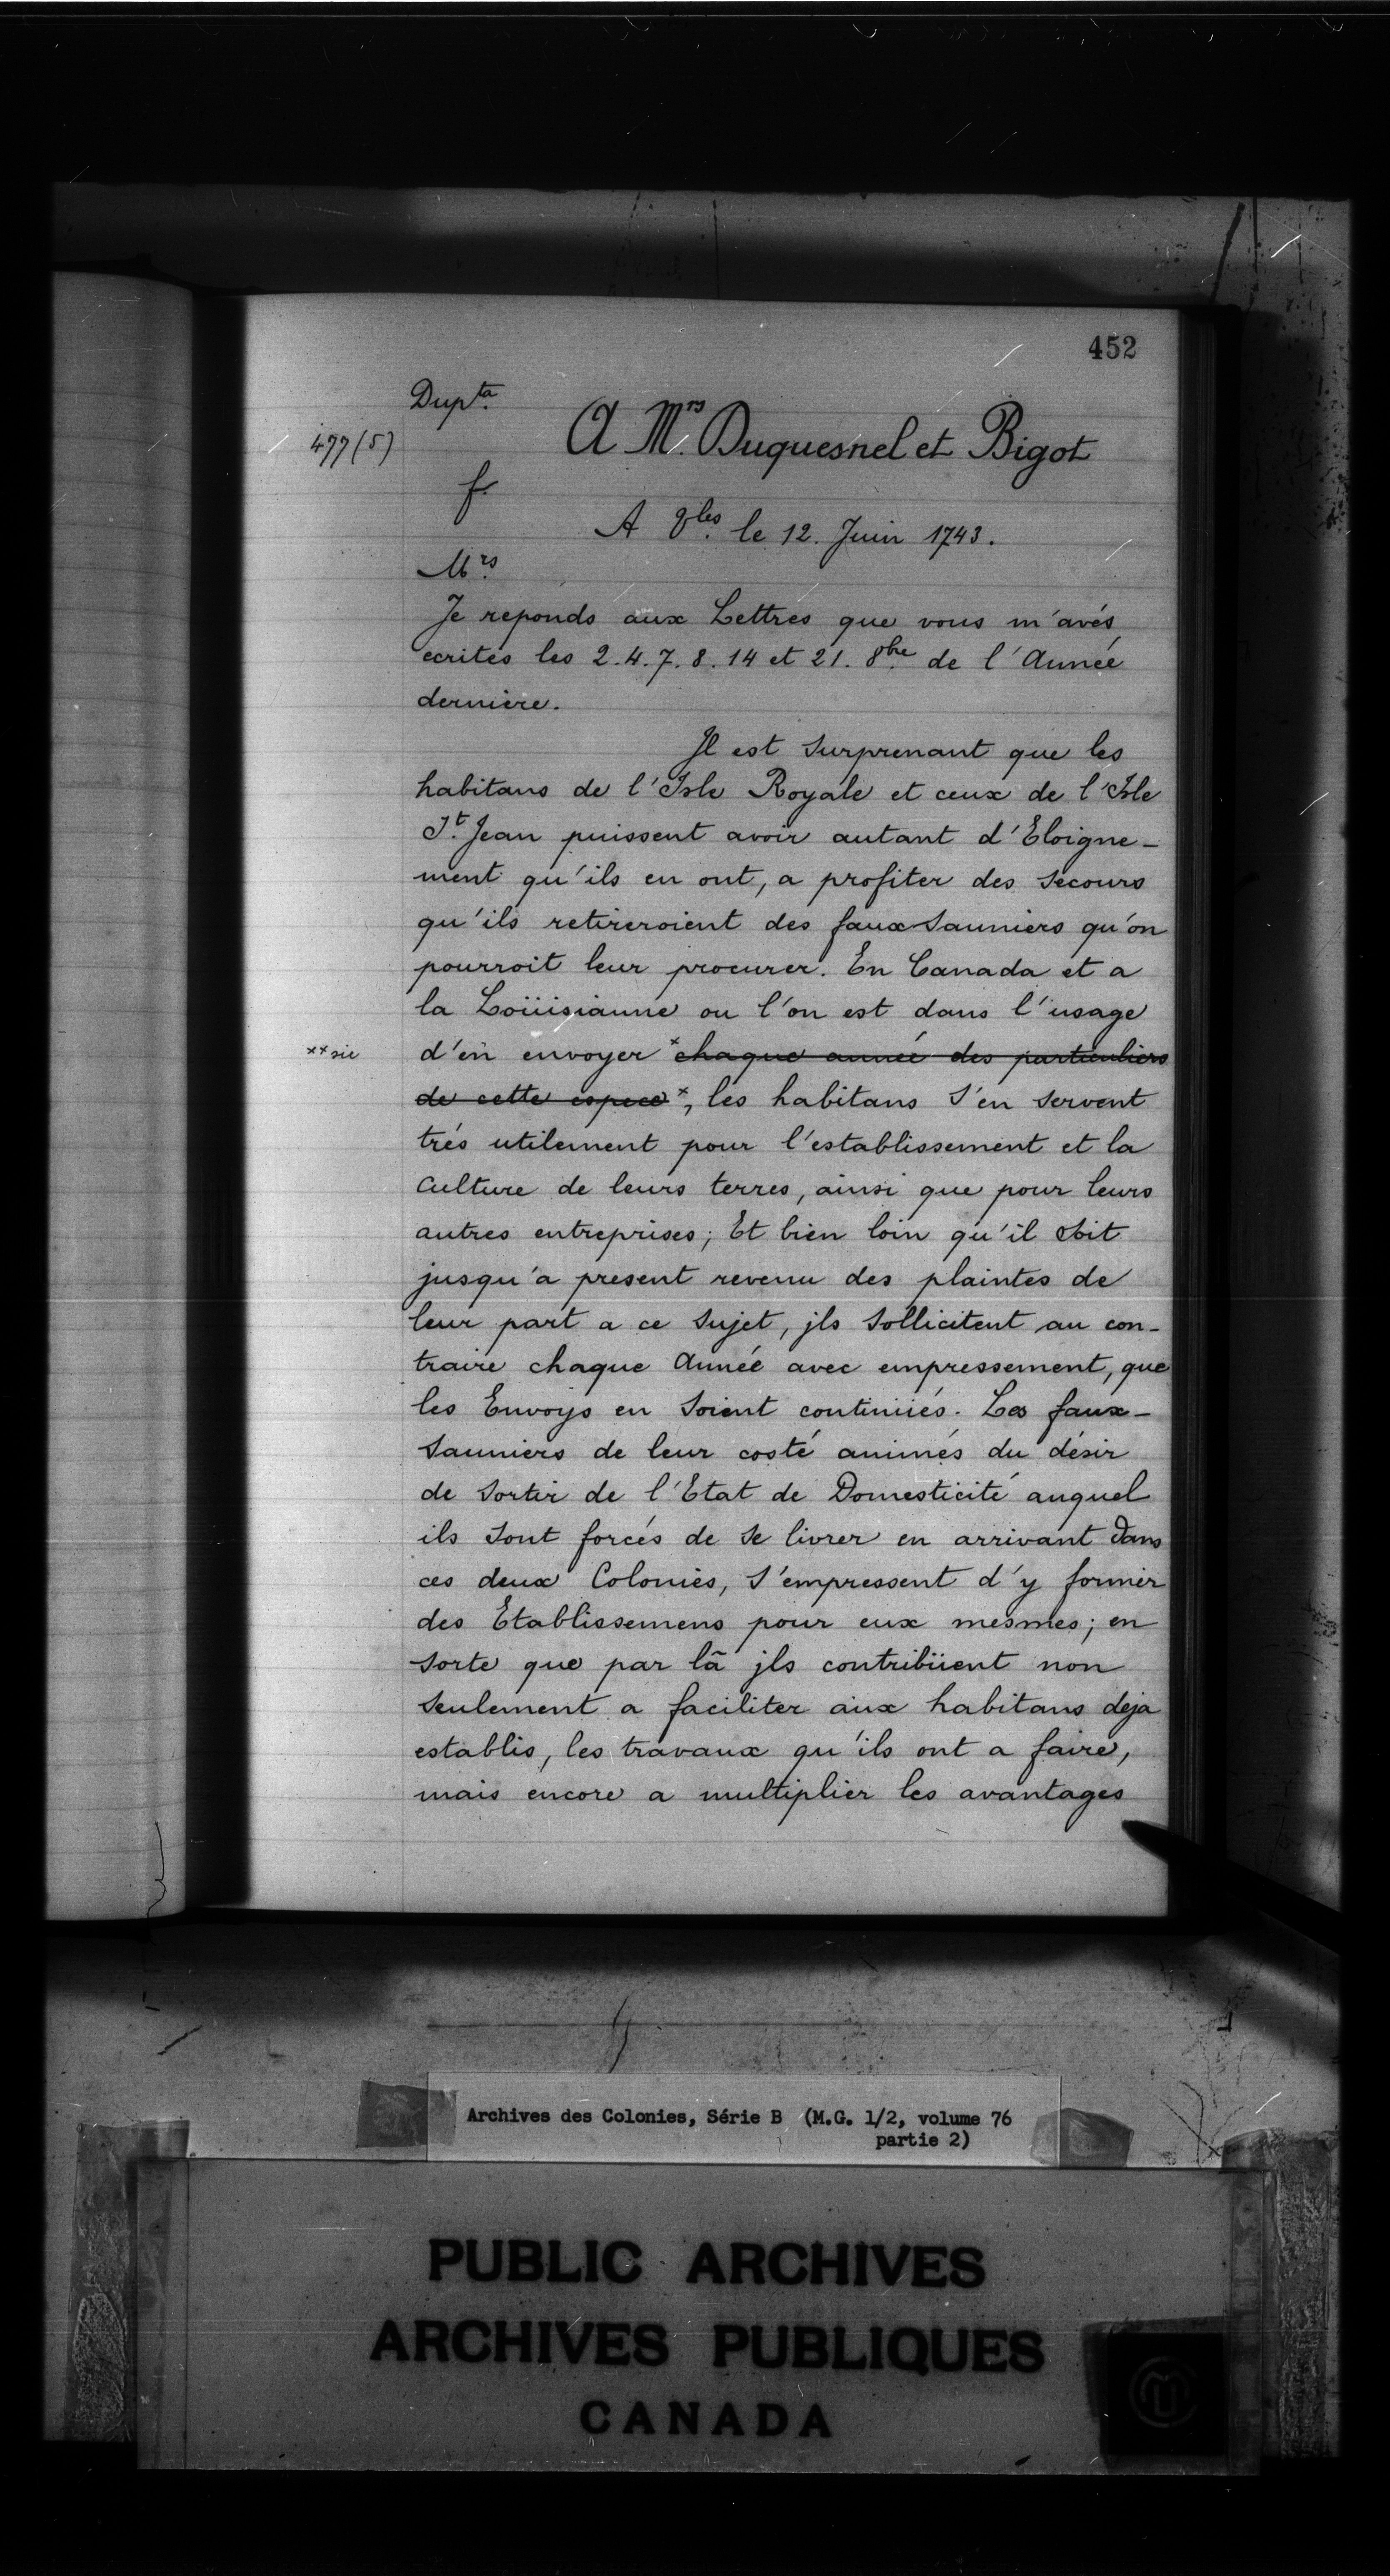 452
Dup.ta
477(5)
A M.rs Duquesnel et Bigot
f.
A V.les le 12. Juin 1743.
M.rs
Je reponds aux Lettres que vous m'avés
ecrites les 2.4.7.8.14 et 21. 8.bre de l'Année
derniere.
Jl est surprenant que les
habitans de l'Isle Royale et ceux de l'Isle
S.t Jean puissent avoir autant d'Eloigne-
ment qu'ils en ont, a profiter des secours
qu'ils retireroient des faux Sauniers qu'on
pourroit leur procurer. En Canada et a
la Loüisianne ou l'on est dans l'usage
xx sic
d'en envoyer x chaque année des particuliers
de cette espece x, les habitans s'en servent
trés utilement pour l'establissement et la
culture de leurs terres, ainsi que pour leurs
autres entreprises; Et bien loin qu'il soit
jusqu'a present revenu des plaintes de
leur part a ce sujet, jls sollicitent au con-
traire chaque Année avec empressement, que
les Envoys en soient continüés. Les faux-
Sauniers de leur costé animés du désir
de sortir de l'Etat de Domesticité auquel
ils sont forcés de se livrer en arrivant dans
ces deux Colonies, s'empressent d'y former
des Etablissemens pour eux mesmes; en
sorte que par là jls contribüent non
seulement a faciliter aux habitans deja
establis, les travaux qu'ils ont a faire,
mais encore a multiplier les avantages
Archives des Colonies, Série B (M.G. 1/2, volume 76
partie 2)
PUBLIC ARCHIVES
ARCHIVES PUBLIQUES
CANADA